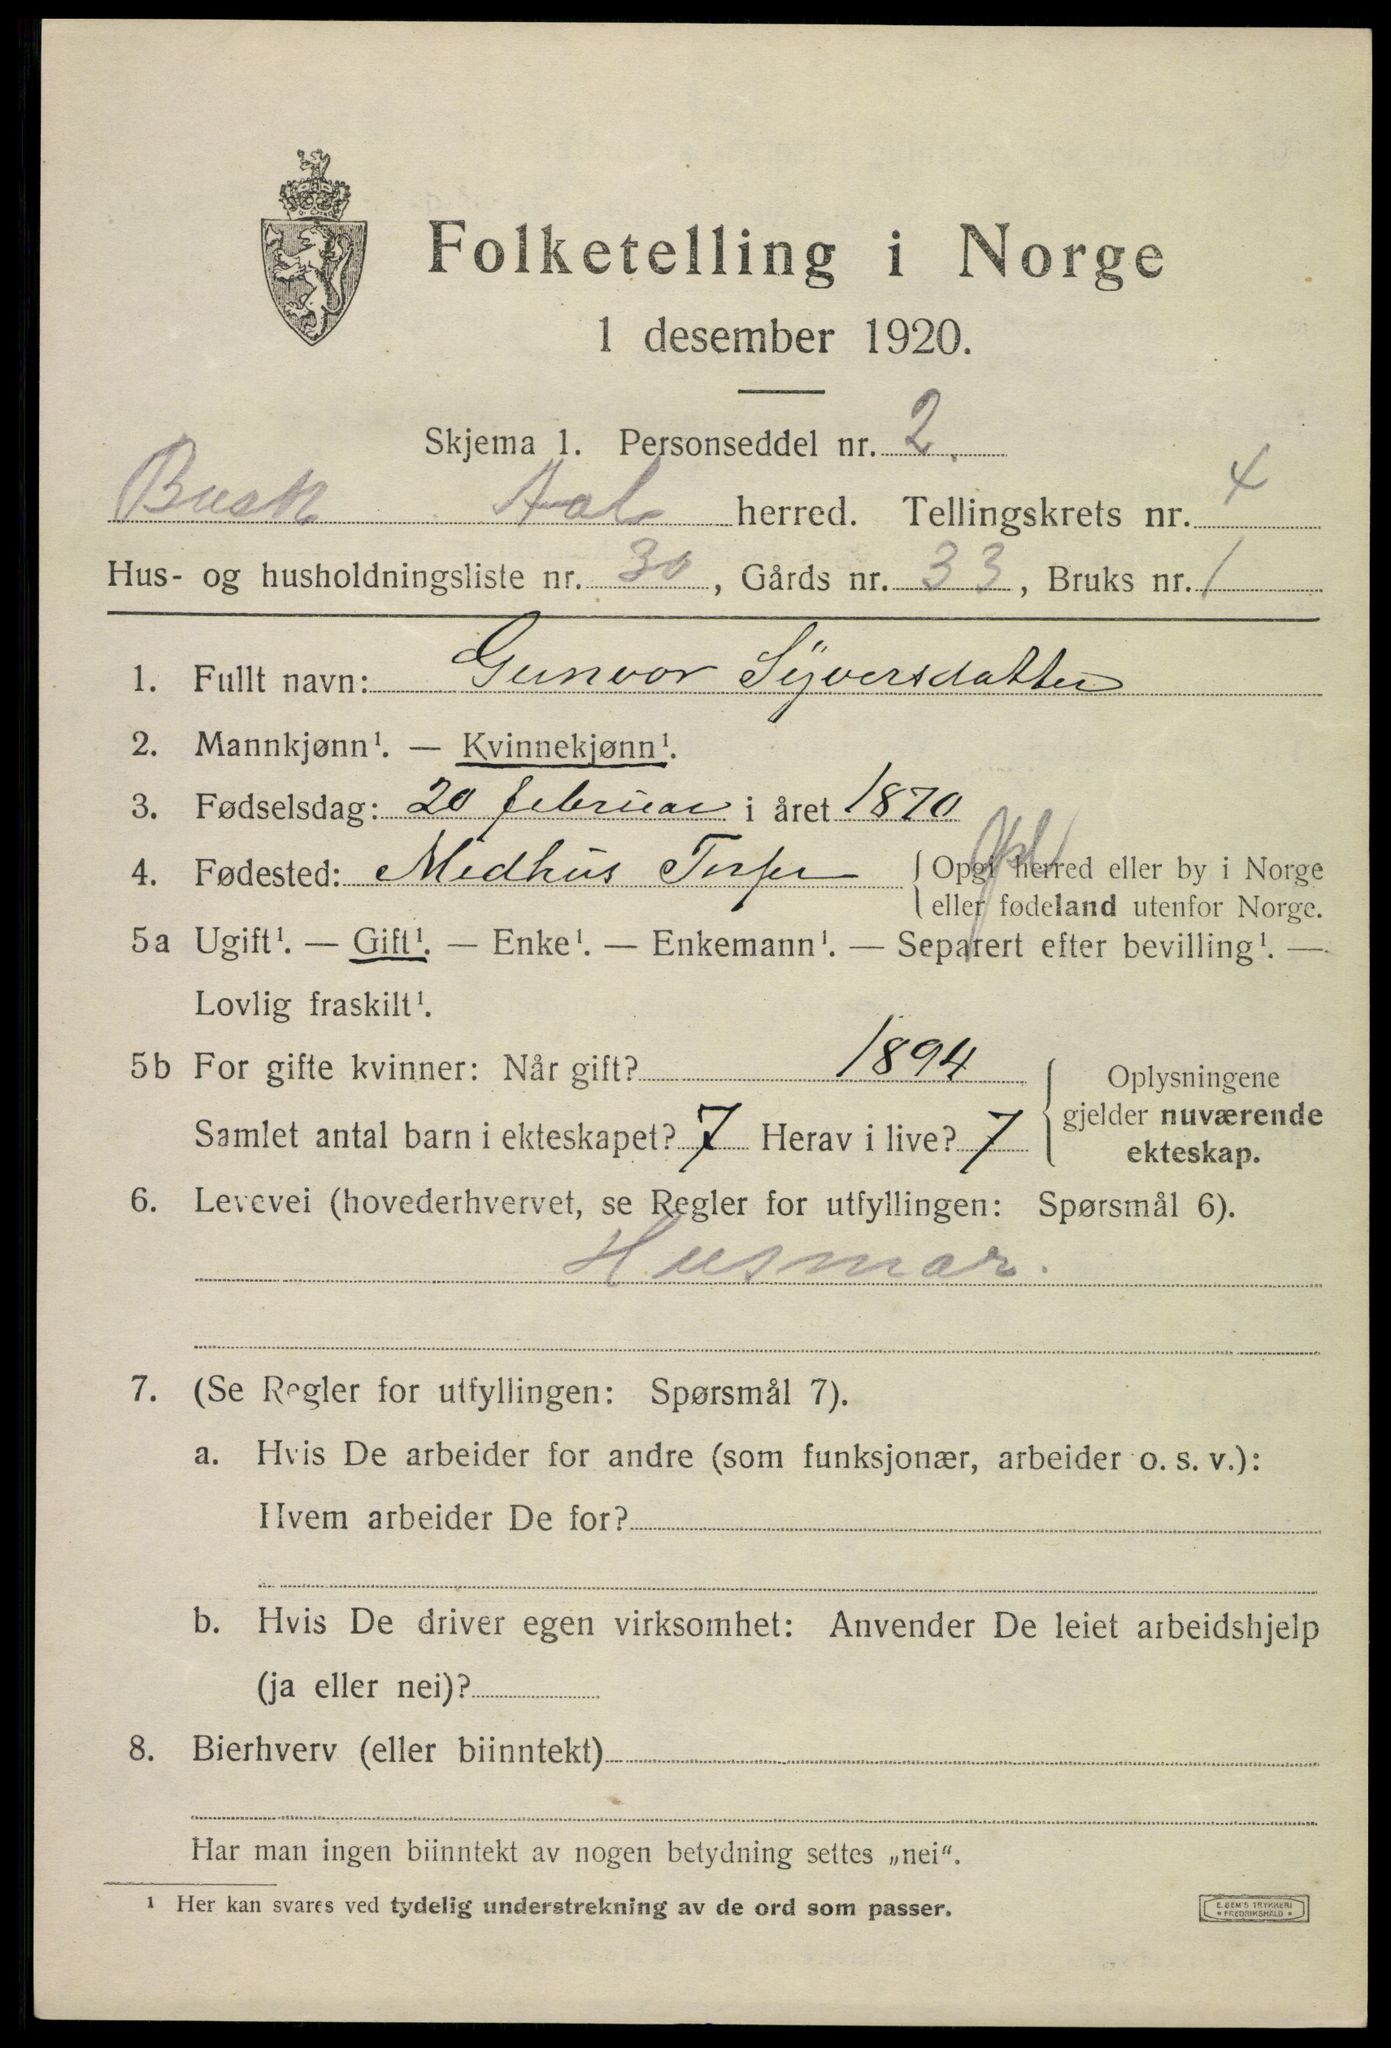 Folketelling i Norge
1 desember 1920.
Skjema 1. Personseddel nr. 2.
Busk Aal herred. Tellingskrets nr. 4
Hus- og husholdningsliste nr. 30, Gårds nr. 33, Bruks nr. 1
1. Fullt navn: Gunvor Syversdatter
2. Mannkjønn¹. — Kvinnekjønn¹.
3. Fødselsdag: 20 februar i året 1870
4. Fødested: Medhus Torpe { Opgi herred eller by i Norge
eller fødeland utenfor Norge.
5a Ugift¹. — Gift¹. — Enke¹. — Enkemann¹. — Separert efter bevilling¹. —
Lovlig fraskilt¹.
5b For gifte kvinner: Når gift? 1894
Samlet antal barn i ekteskapet? 7 Herav i live? 7
Oplysningene
gjelder nuværende
ekteskap.
6. Levevei (hovederhvervet, se Regler for utfyllingen: Spørsmål 6).
Husmor.
7. (Se Regler for utfyllingen: Spørsmål 7).
a. Hvis De arbeider for andre (som funksjonær, arbeider o. s. v.):
Hvem arbeider De for?
b. Hvis De driver egen virksomhet: Anvender De leiet arbeidshjelp
(ja eller nei)?
8. Bierhverv (eller biinntekt)
Har man ingen biinntekt av nogen betydning settes „nei“.
¹ Her kan svares ved tydelig understrekning av de ord som passer.
E. SEM'S TRYKKERI
* FREDRIKSHALD *